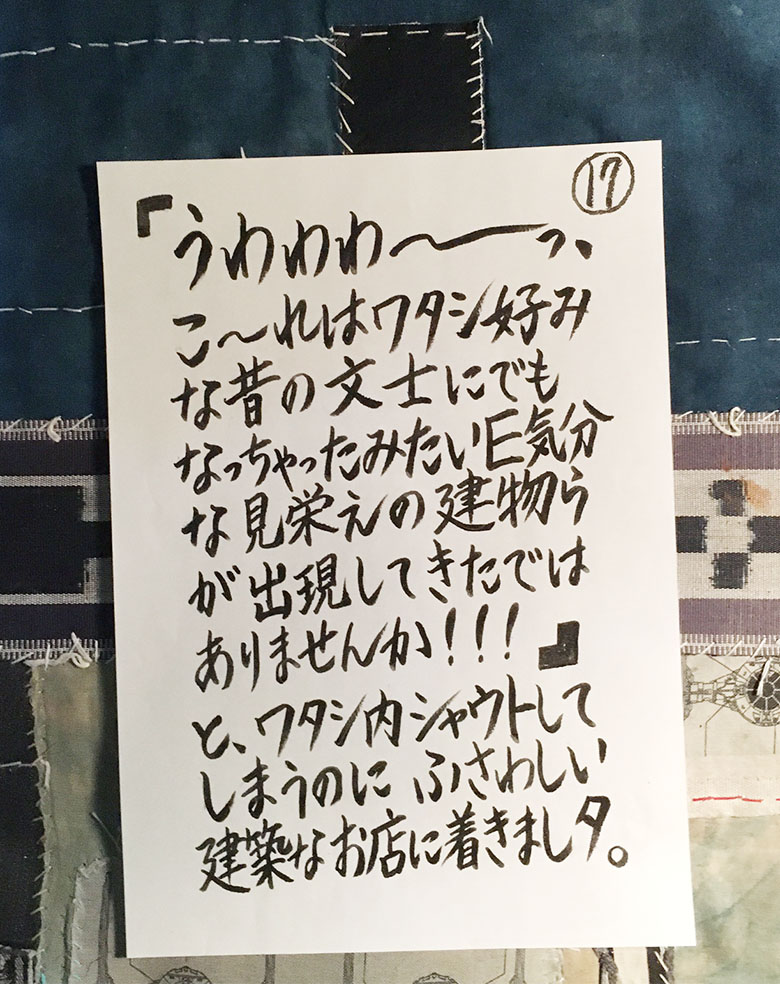 ⑰
『うわわわ〜ーっ、
こ〜れはワタシ好み
な昔の文士にでも
なっちゃったみたいE気分
な見栄えの建物ら
が出現してきたでは
ありませんか!!!』
と、ワタシ内シャウトして
しまうのにふさわしい
建築なお店に着きましタ。